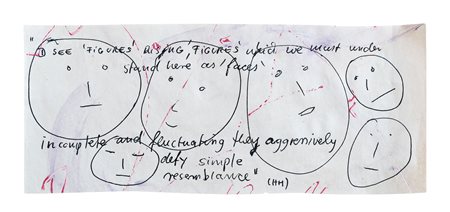 "
I SEE 'FIGURES' RISING, 'FIGURES' which we must under
stand here as 'faces'
incomplete and fluctuating they aggresively
defy simple
resemblance" (HH)